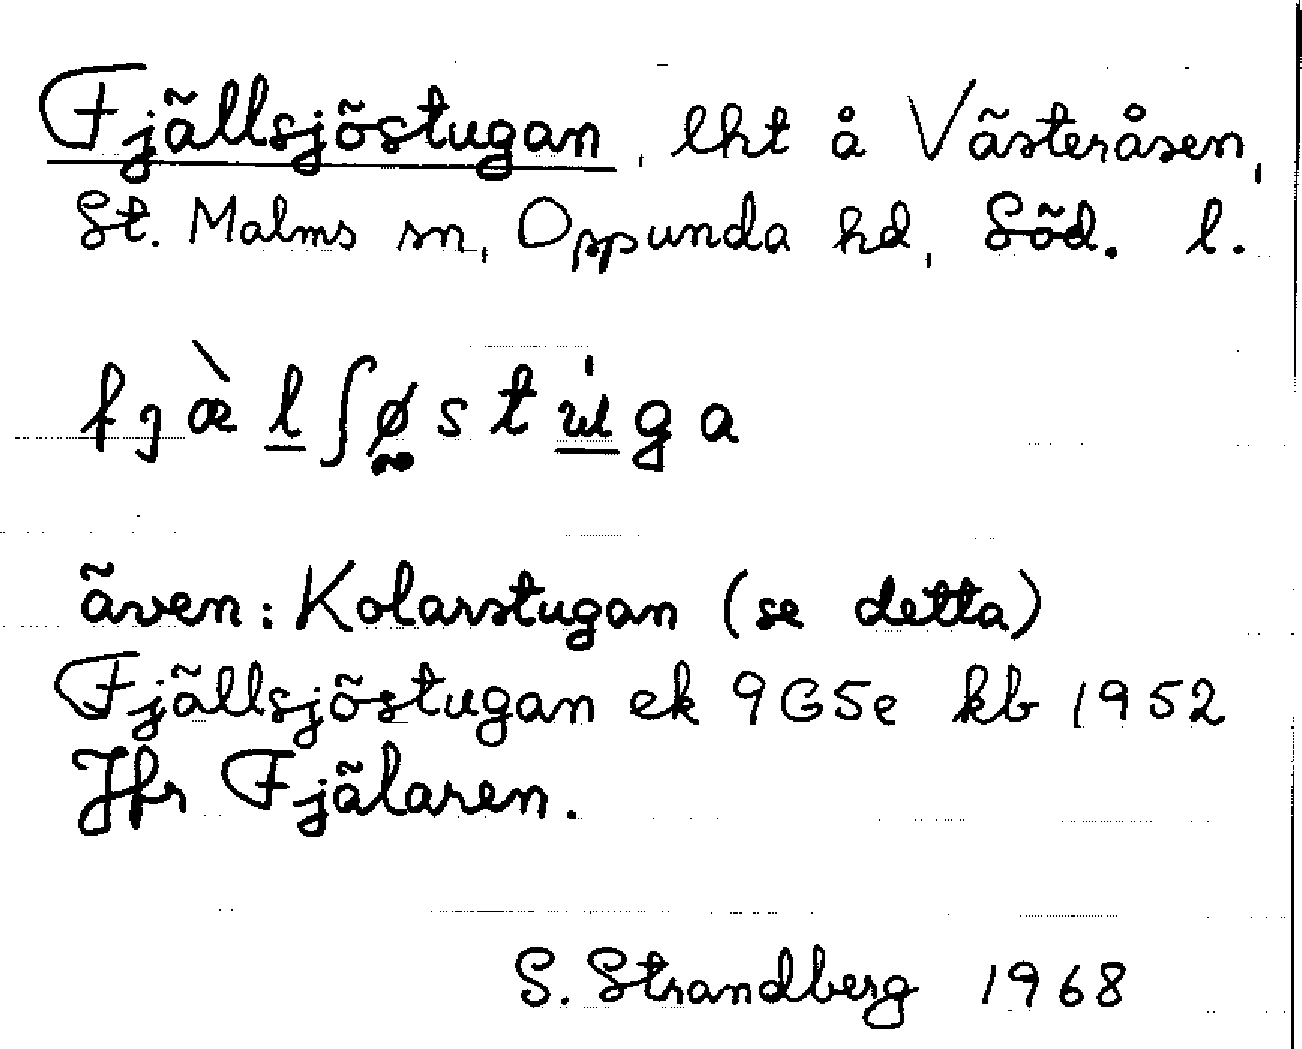 Fjällsjöstugan, lht å Västeråsen,
St. Malms sn, Oppunda hd, Söd. l.
fjæ̀l̲ʃø̰stu̲̍ga
även: Kolarstugan (se detta)
Fjällsjöstugan ek 9G5e kb 1952
Jfr Fjälaren.
S. Strandberg 1968